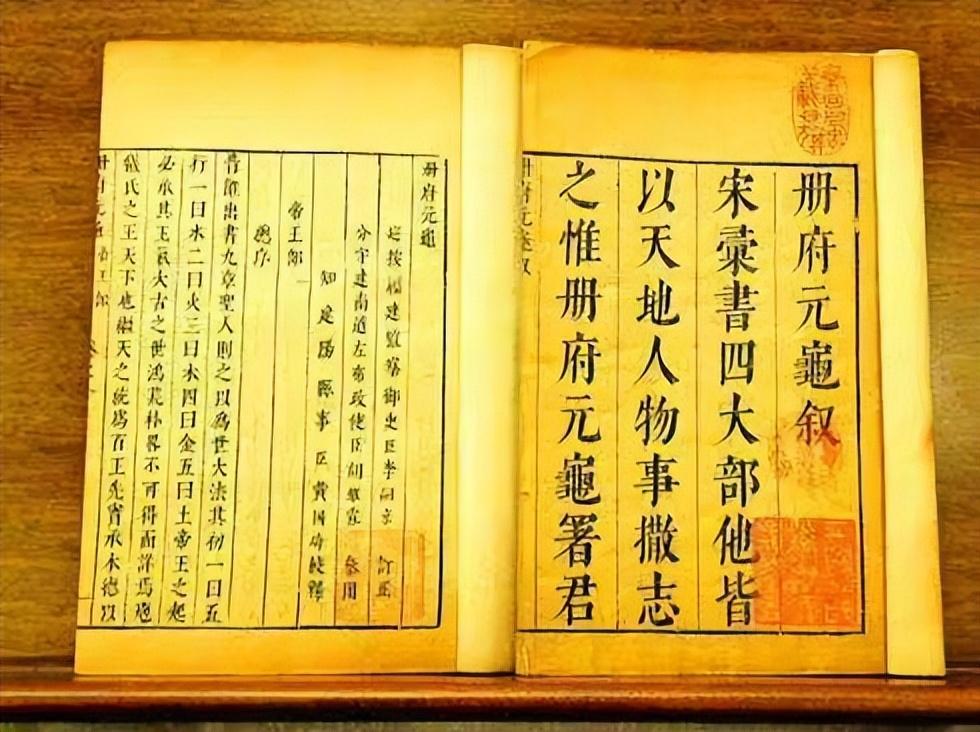 册府元龜叙
宋彙書四大部他皆
以天地人物事撒志
之惟册府元龜署君
册府元龜叙
册府元龜
巡按福建監察御史臣李嗣京 訂正
分守建南道左布政使臣胡維霖 參閱
知建陽縣事臣黃國琦較釋
帝王部一
總序
昔雒出書九章聖人則之以爲世大法其初一曰五
行一曰水二曰火三曰木四曰金五曰土帝王之起
必承其王氣太古之世鴻荒朴畧不可得而詳焉庖
犧氏之王天下也繼天之統爲百王先實承木德以
册府元龜 帝王部